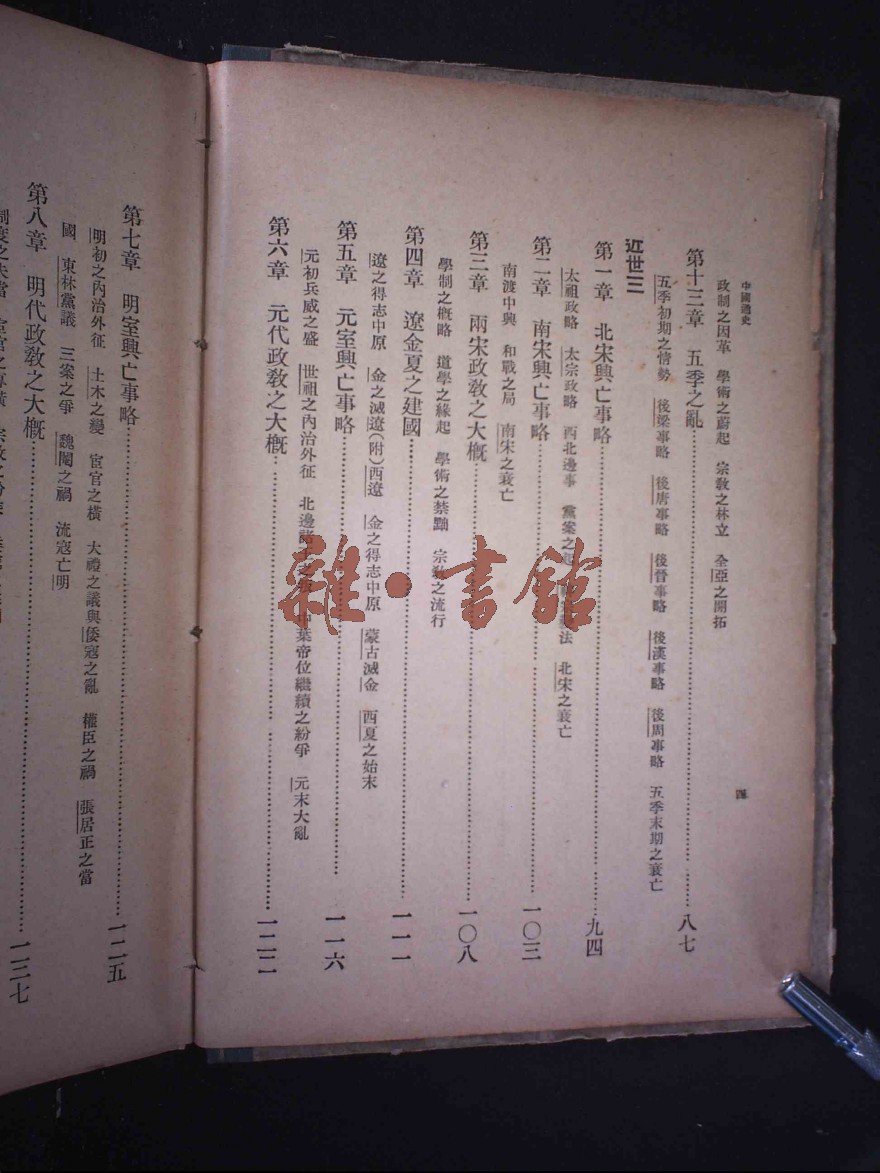 中國通史
四
政制之因革　學術之蔚起　宗教之林立　全亞之開拓
第十三章　五季之亂……八七
五季初期之情勢　後梁事略　後唐事略　後晉事略　後漢事略　後周事略　五季末期之衰亡
近世三
第一章　北宋興亡事略……九四
太祖政略　太宗政略　西北邊事　黨案之起　法　北宋之衰亡
第二章　南宋興亡事略……一〇三
南渡中興　和戰之局　南宋之衰亡
第三章　兩宋政教之大概……一〇八
學制之概略　道學之緣起　學術之禁黜　宗教之流行
第四章　遼金夏之建國……一一一
遼之得志中原　金之滅遼(附)西遼　金之得志中原　蒙古滅金　西夏之始末
第五章　元室興亡事略……一一六
元初兵威之盛　世祖之內治外征　北邊諸王之　葉帝位繼續之紛爭　元末大亂
第六章　元代政教之大概……一二二
第七章　明室興亡事略……一二五
明初之內治外征　土木之變　宦官之橫　大禮之議與倭寇之亂　權臣之禍　張居正之當
國　東林黨議　三案之爭　魏閹之禍　流寇亡明
第八章　明代政教之大概……一三七
雜·書館